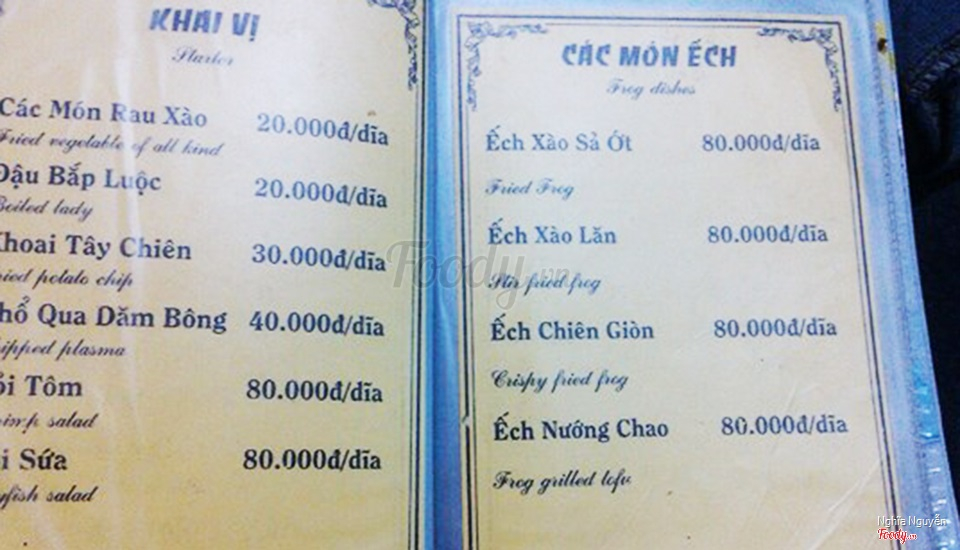 KHAI VỊ
Starter
Các Món Rau Xào 20.000đ/dĩa
Fried vegetable of all kind
Đậu Bắp Luộc 20.000đ/dĩa
Boiled lady
Khoai Tây Chiên 30.000đ/dĩa
potato chip
Qua Dăm Bông 40.000đ/dĩa
plasma
Tôm 80.000đ/dĩa
salad
Sứa 80.000đ/dĩa
salad
CÁC MÓN ẾCH
Frog dishes
Ếch Xào Sả Ớt 80.000đ/dĩa
Fried Frog
Ếch Xào Lăn 80.000đ/dĩa
Stir fried frog
Ếch Chiên Giòn 80.000đ/dĩa
Crispy fried frog
Ếch Nướng Chao 80.000đ/dĩa
Frog grilled tofu
Foody.vn
Nghĩa Nguyễn
Foody.vn